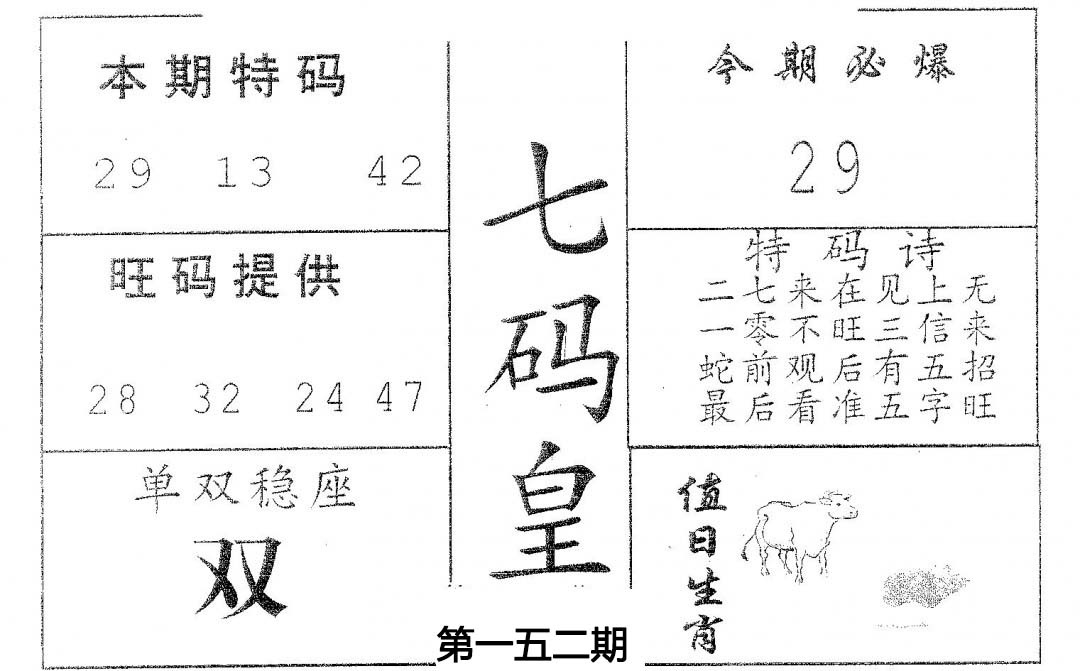 本期特码
29 13 42
旺码提供
28 32 24 47
单双稳座
双
七码皇
第一五二期
今期必爆
29
特码诗
二七来在见上无
一零不旺三信来
蛇前观后有五招
最后看准五字旺
值日生肖